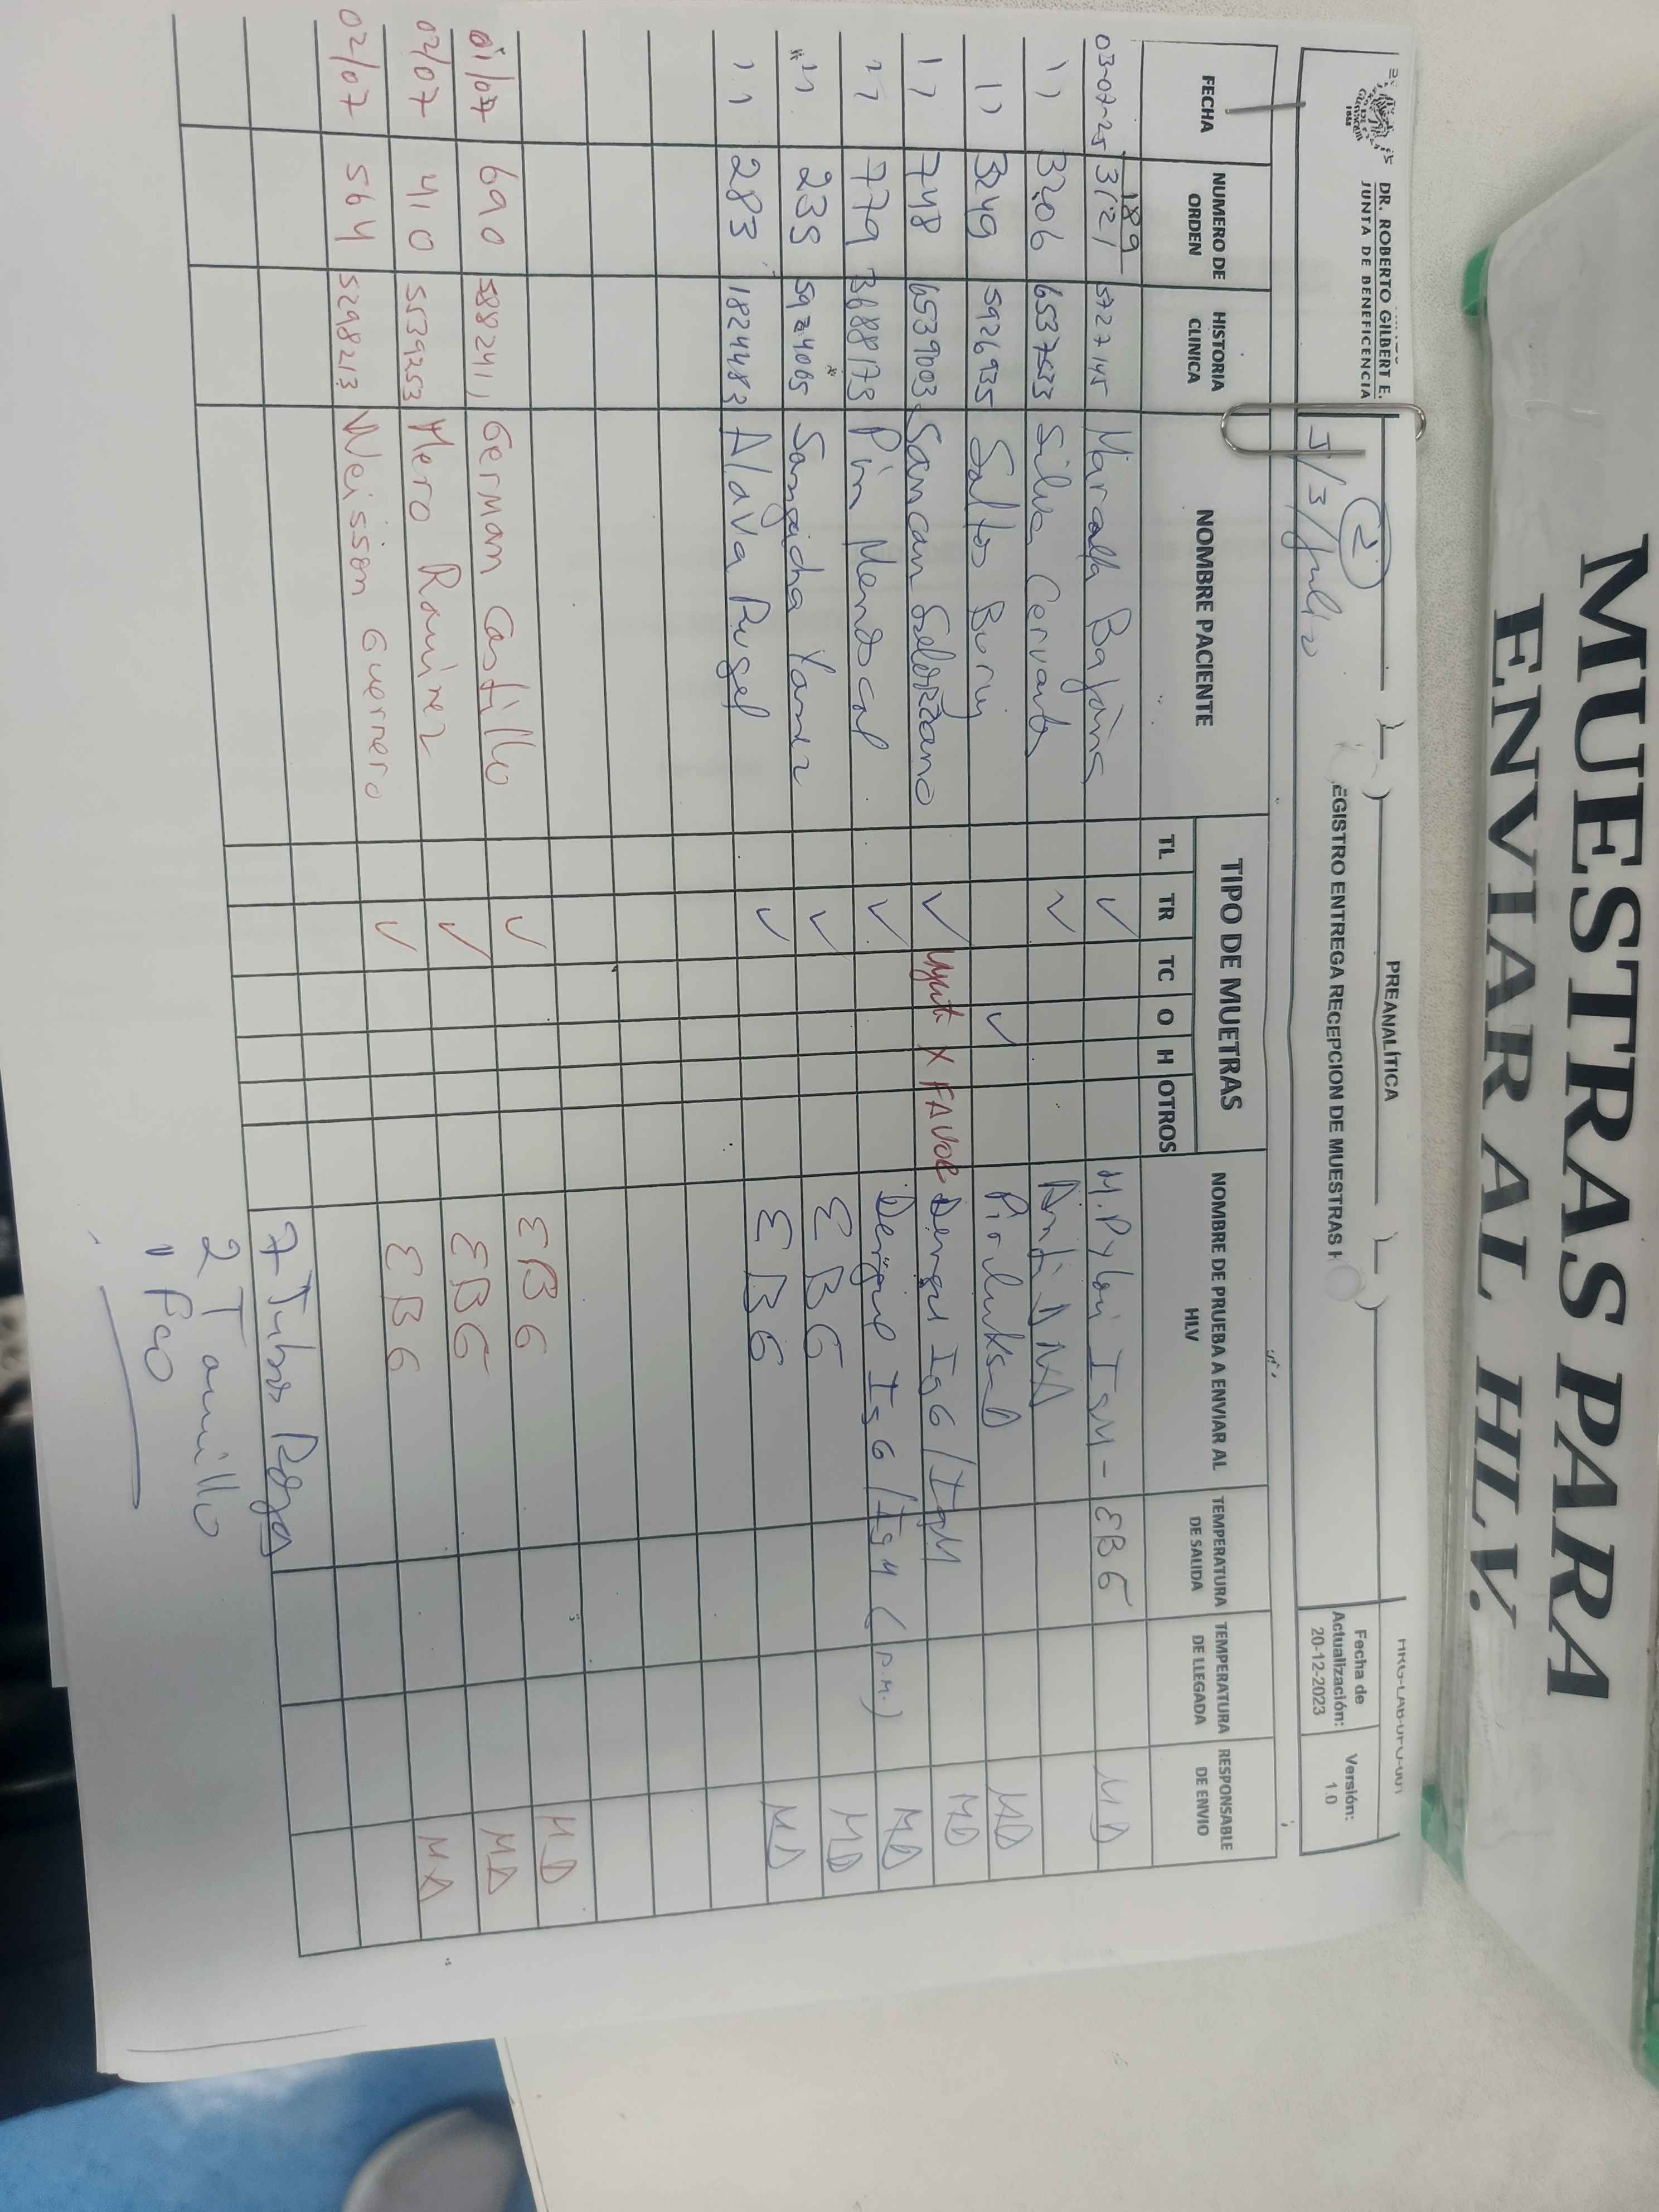 MUESTRAS PARA
ENVIAR AL HLV.
DR. ROBERTO GILBERT E.
JUNTA DE BENEFICENCIA
PREANALÍTICA
EGISTRO ENTREGA RECEPCION DE MUESTRAS H
Fecha de Actualización: 20-12-2023
Versión: 1.0
2
J/3/Julio
FECHA NUMERO DE ORDEN HISTORIA CLINICA NOMBRE PACIENTE TIPO DE MUETRAS NOMBRE DE PRUEBA A ENVIAR AL HLV TEMPERATURA DE SALIDA TEMPERATURA DE LLEGADA RESPONSABLE DE ENVIO
TL TR TC O H OTROS
189
03-07-25 3121 5727145 Maralla Bajaña ✓ H. Pylori IgM - EBG MD
11 3206 6537533 Silva Cervantes ✓ Anti DNA
11 3249 5926935 Saltos Buri ✓ MD
11 748 6539003 Sancan Solorzano ✓ Urgente x FAVOR Dengue IgG/IgM MD
11 779 3688173 Pin Mendoza ✓ Dengue IgG/IgM (P.M.) MD
11 235 5924065 Sangacha Yanez ✓ EBG MD
11 283 1824483 Alava Rugel ✓ EBG MD
01/07 690 588241 German Castillo ✓ EBG MD
02/07 410 5539253 Mero Ramirez ✓ EBG MD
02/07 564 5298213 Weisson Guerrero ✓ EBG MD
7 Tubos Rojos
2 T amarillo
1 Fco